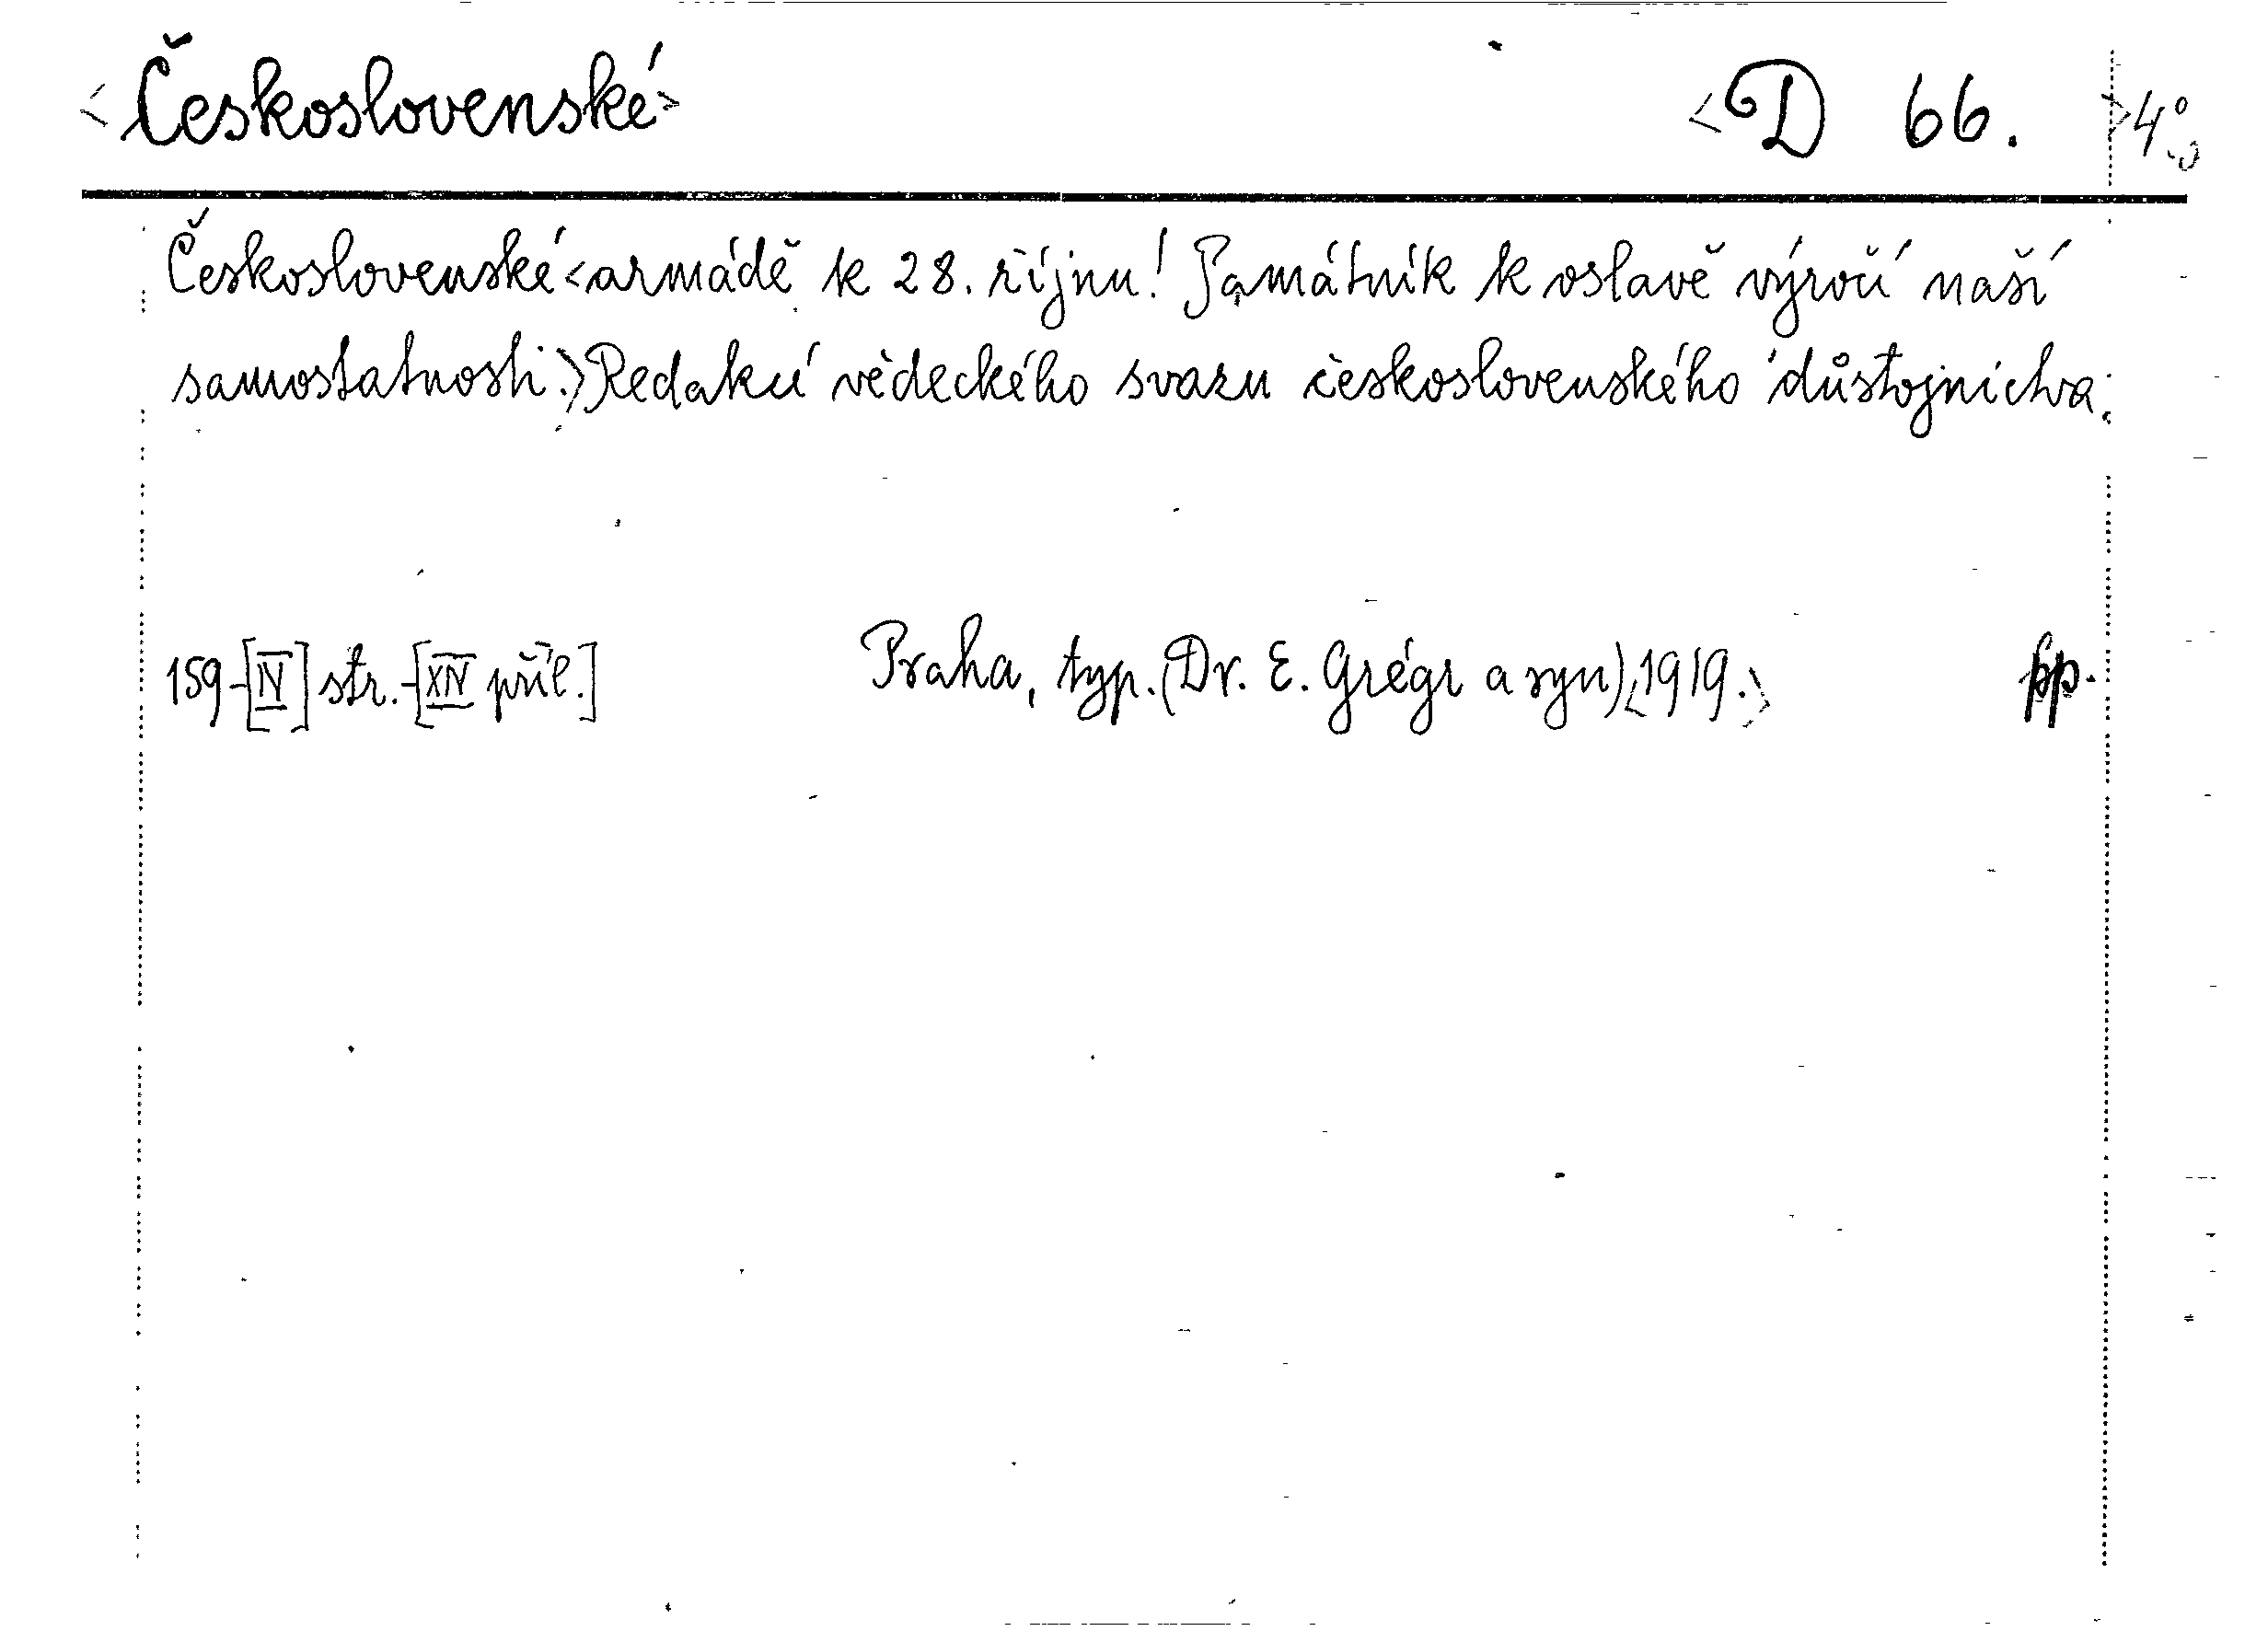 <Československé> <D 66. >4°
Československé <armádě k 28. říjnu! Památník k oslavě výročí naší
samostatnosti.> Redakcí vědeckého svazu československého důstojnictva.
159-[IV] str.-[XIV příl.] Praha, typ. (Dr. E. Grégr a syn) <1919.> pp.